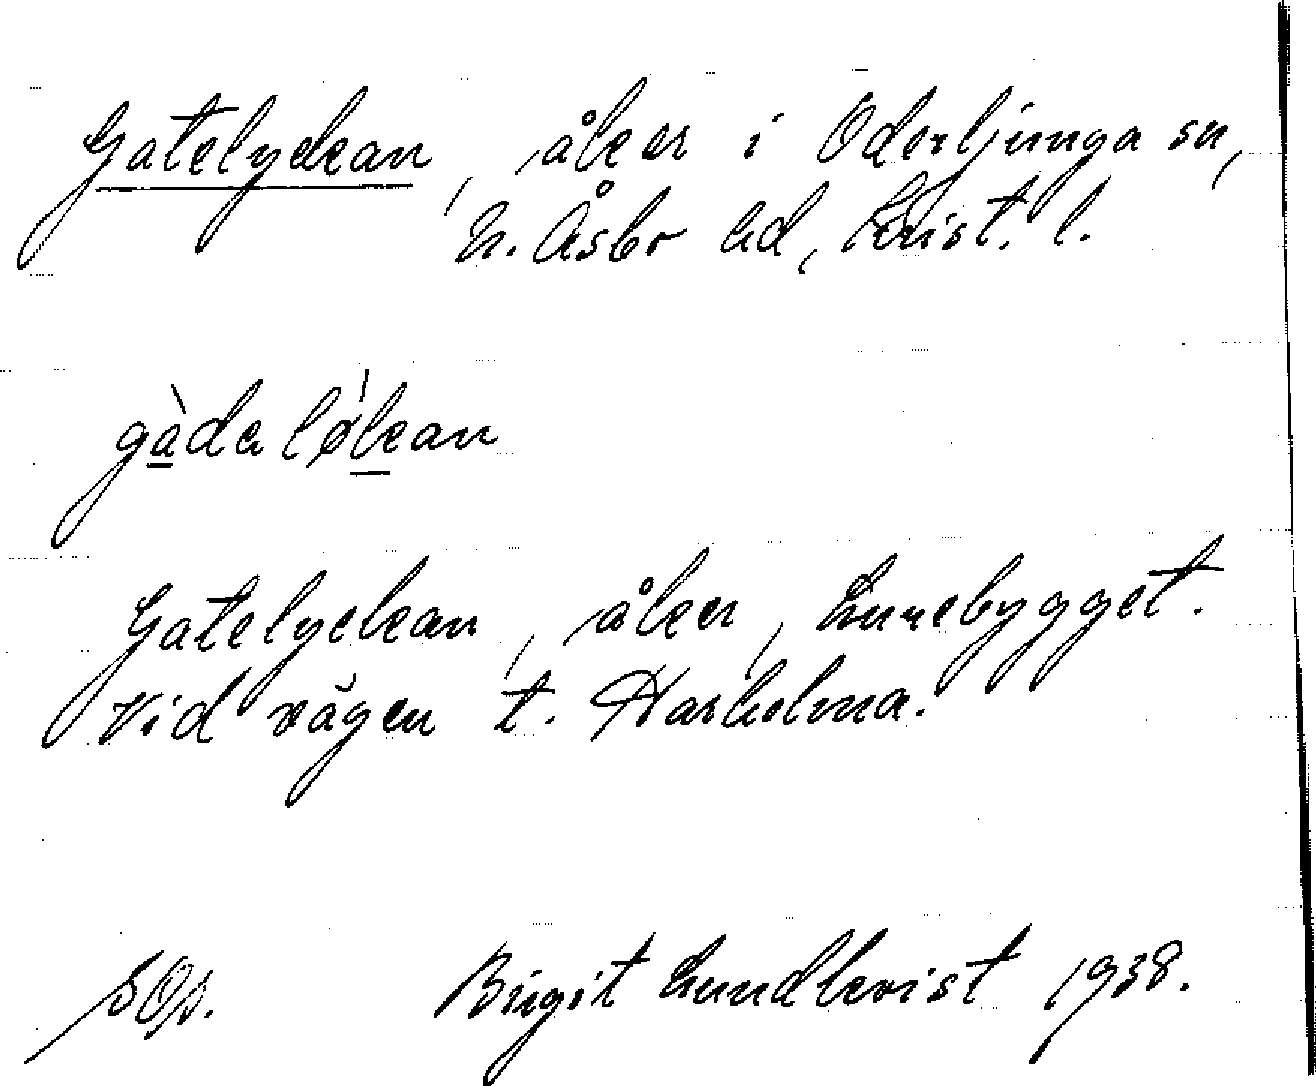 Gatelyckan, åker i Oderljunga sn,
N. Åsbo hd, Krist. l.
gàdalø̀kan
Gatelyckan, åker, Lurebygget.
Vid vägen t. Harholma.
Birgit Lundkvist 1938.